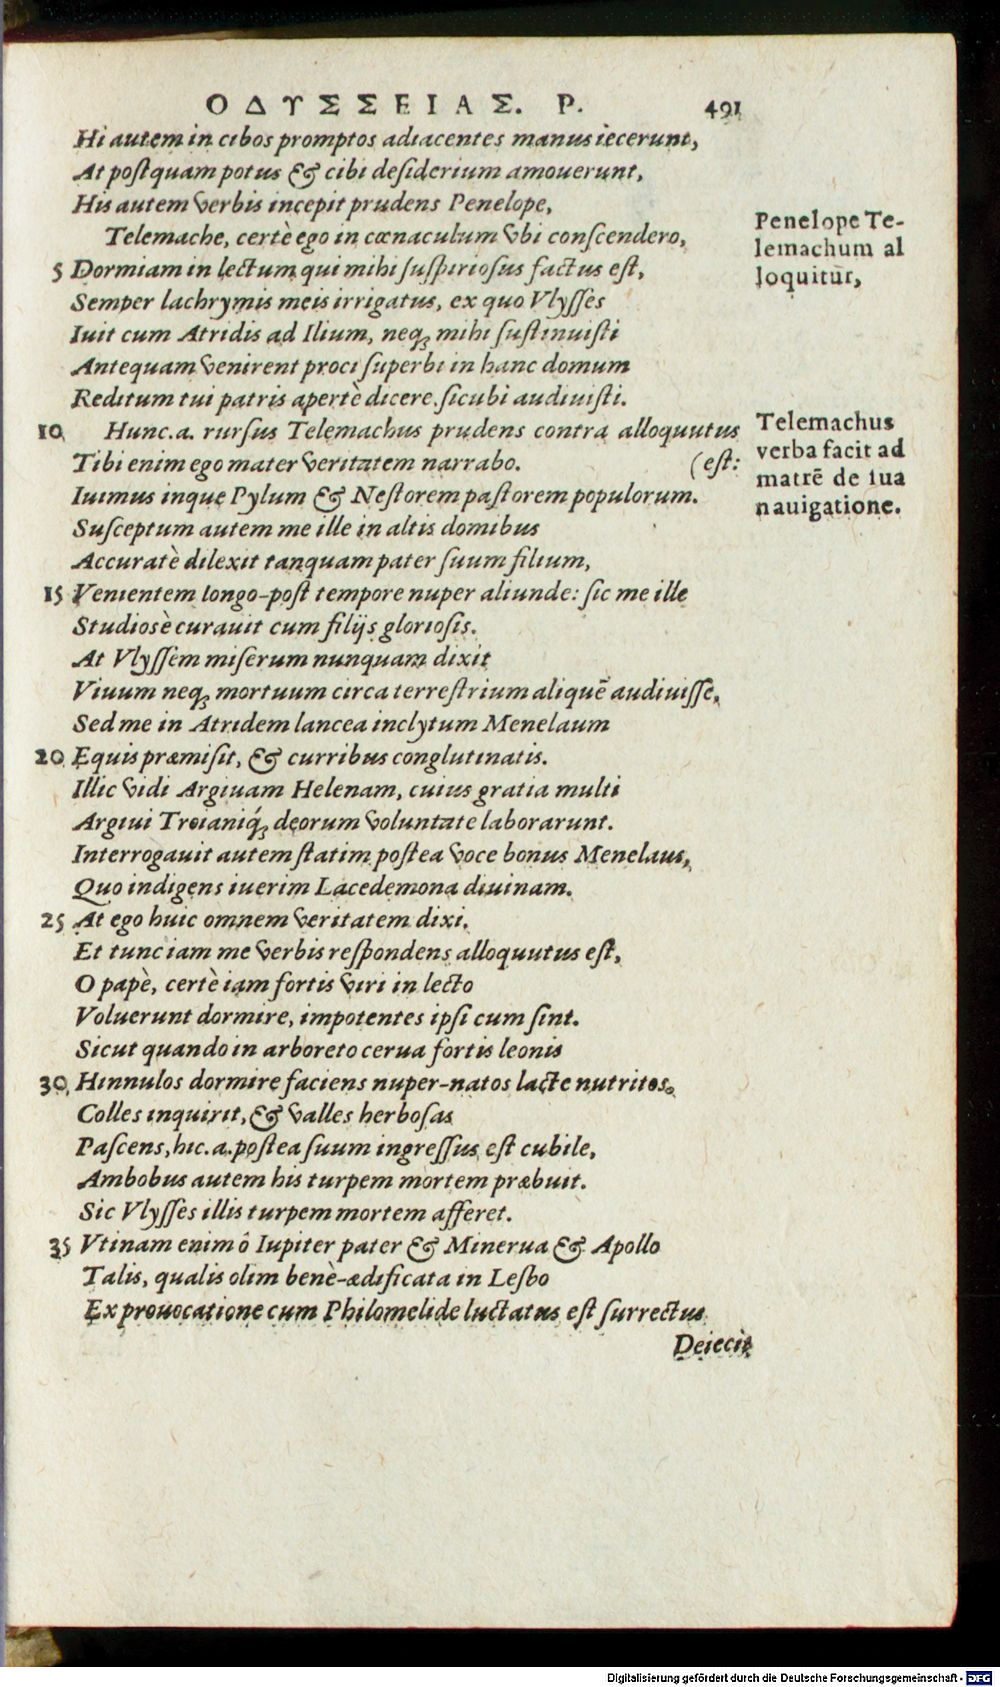 ΟΔΥΣΣΕΙΑΣ. Ρ. 491
Hi autem in cibos promptos adiacentes manus iecerunt,
At postquam potus & cibi desiderium amouerunt,
His autem verbis incepit prudens Penelope,
Telemache, certè ego in cœnaculum vbi conscendero,
5 Dormiam in lectum qui mihi suspiriosus factus est,
Semper lachrymis meis irrigatus, ex quo Vlysses
Iuit cum Atridis ad Ilium, neq; mihi sustinuisti
Antequam venirent proci superbi in hanc domum
Reditum tui patris apertè dicere, sicubi audiuisti.
10 Hunc.a. rursus Telemachus prudens contra alloquutus
Tibi enim ego mater veritatem narrabo. (est:
Iuimus inque Pylum & Nestorem pastorem populorum.
Susceptum autem me ille in altis domibus
Accuratè dilexit tanquam pater suum filium,
15 Venientem longo-post tempore nuper aliunde: sic me ille
Studiosè curauit cum filijs gloriosis.
At Vlyssem miserum nunquam dixit
Viuum neq; mortuum circa terrestrium aliquē audiuisse,
Sed me in Atridem lancea inclytum Menelaum
20 Equis præmisit, & curribus conglutinatis.
Illic vidi Argiuam Helenam, cuius gratia multi
Argiui Troianiq́; deorum voluntate laborarunt.
Interrogauit autem statim postea voce bonus Menelaus,
Quo indigens iuerim Lacedemona diuinam.
25 At ego huic omnem veritatem dixi.
Et tunc iam me verbis respondens alloquutus est,
O papè, certè iam fortis viri in lecto
Voluerunt dormire, impotentes ipsi cum sint.
Sicut quando in arboreto cerua fortis leonis
30 Hinnulos dormire faciens nuper-natos lacte nutritos.
Colles inquirit, & valles herbosas
Pascens, hic.a. postea suum ingressus est cubile,
Ambobus autem his turpem mortem præbuit.
Sic Vlysses illis turpem mortem afferet.
35 Vtinam enim ô Iupiter pater & Minerua & Apollo
Talis, qualis olim benè-ædificata in Lesbo
Ex prouocatione cum Philomelide luctatus est surrectus
Deiecit
Penelope Te-
lemachum al
loquitur,
Telemachus
verba facit ad
matrē de sua
nauigatione.
Digitalisierung gefördert durch die Deutsche Forschungsgemeinschaft - DFG